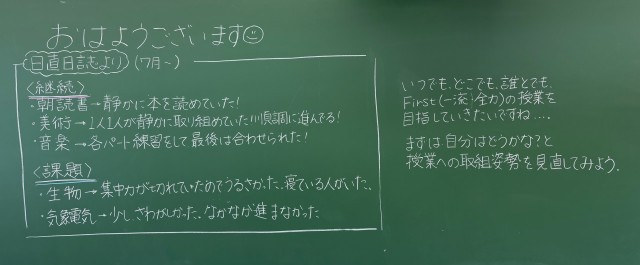 おはようございます☺
日直日誌より (7月〜)
〈継続〉
・朝読書→静かに本を読めていた!
・美術→1人1人が静かに取り組めていた!!!順調に進んでる!
・音楽→各パート練習をして最後は合わせられた!
〈課題〉
・生物→集中力が切れていたのでうるさかった、寝ている人がいた、
・気象電気→少し、さわがしかった、なかなか進まなかった
いつでも、どこでも、誰とでも、
First(一流・全力)の授業を
目指していきたいですね....
まずは自分はどうかな?と
授業への取組姿勢を見直してみよう。